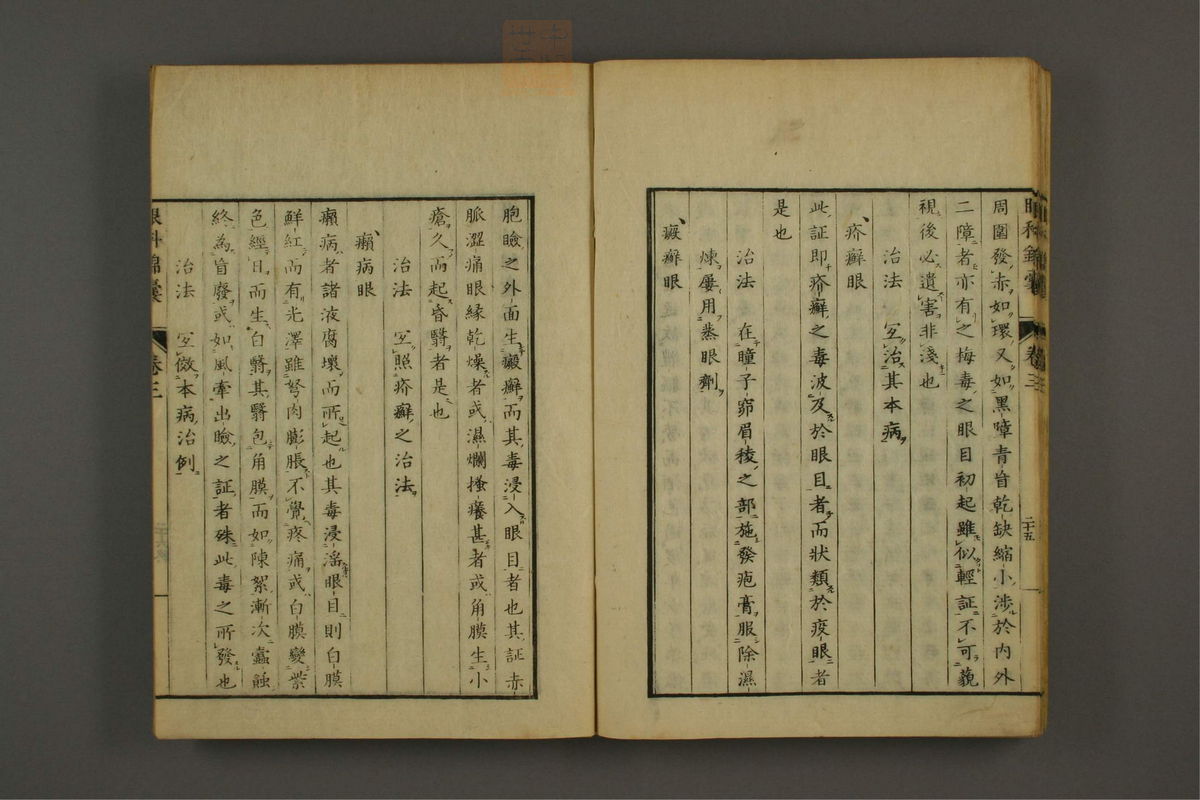 眼科錦囊 卷三 二十五
周圍發赤如環又如黑嶂青盲乾缺縮小涉於内外
二障者亦有之梅毒之眼目初起雖似輕証不可藐
視後必遺害非淺也
治法 宜治其本病
疥癬眼
此証即疥癬之毒波及於眼目者而状類於疫眼者
是也
治法 在瞳子窌眉稜之部施發疱膏服除濕
煉屢用蒸眼劑
癜癬眼
胞瞼之外面生癜癬而其毒浸入眼目者也其証赤
脈澀痛眼縁乾燥者或濕爛搔癢甚者或角膜生小
瘡久而起昏翳者是也
治法 宜照疥癬之治法
癩病眼
癩病者諸液腐壞而所起也其毒浸淫眼目則白膜
鮮紅而有光澤雖弩肉膨脹不覺疼痛或白膜變紫
色經日而生白翳其翳包角膜而如陳絮漸次蠧蝕
終為盲廢或如風牽出瞼之証者殊此毒之所發也
治法 宜倣本病治例
眼科錦囊 卷三